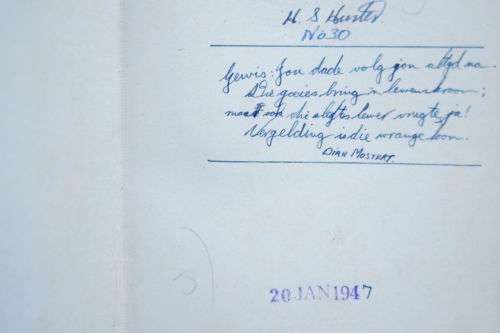 H. S. Hunter
No 30
Gewis: Jou dade volg jou altyd na.
Die goeies bring 'n lewenskroon;
maar ook die slegtes lewer vrugte, ja!
Vergelding is die wrange loon.
DIRK MOSTERT.
20 JAN 1947